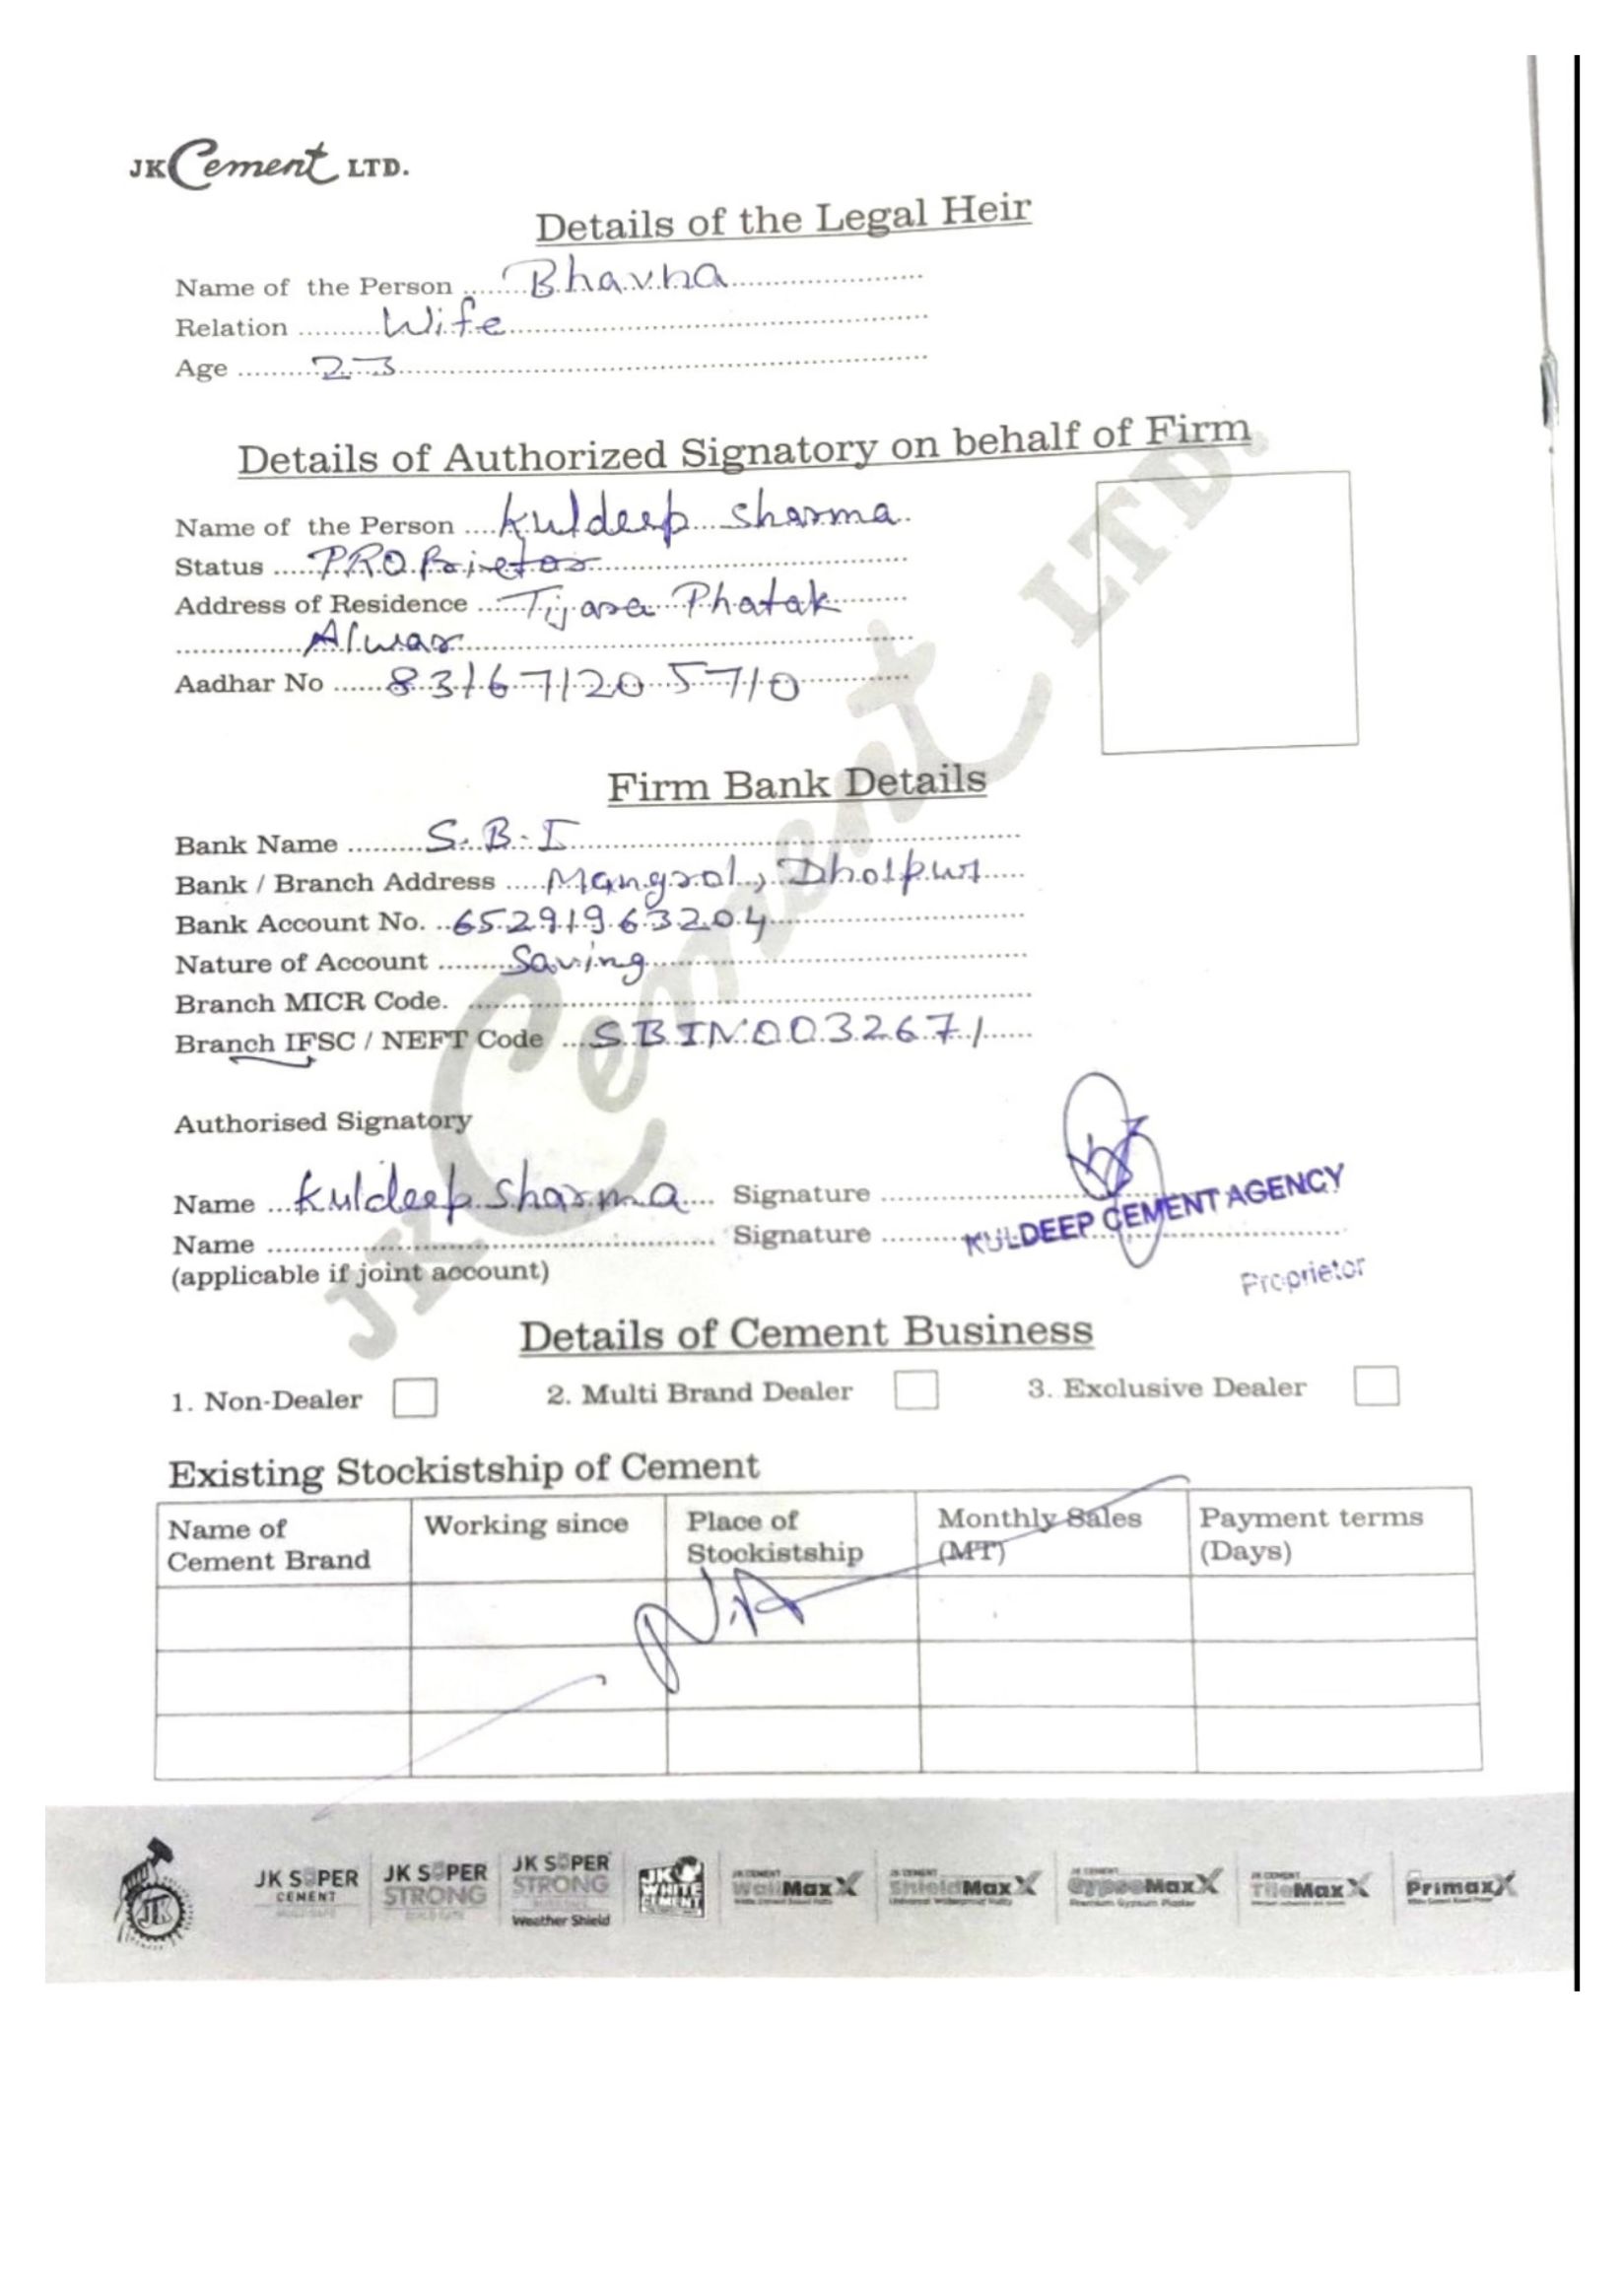 JK Cement LTD.
Details of the Legal Heir
Name of the Person ....... Bhavna
Relation ......... Wife
Age ......... 23
Details of Authorized Signatory on behalf of Firm
Name of the Person .... Kuldeep Sharma
Status ..... PROPrietor
Address of Residence ..... Tijara Phatak
Alwar
Aadhar No ...... 831671205710
Firm Bank Details
Bank Name ......... S.B.I
Bank / Branch Address ..... Mangrol, Dholpur
Bank Account No. .. 65291963204
Nature of Account ......... Saving
Branch MICR Code. ..........
Branch IFSC / NEFT Code ... SBIN0032671
Authorised Signatory
Name ... Kuldeep Sharma .... Signature ..........
KULDEEP CEMENT AGENCY
Name .......... Signature ..........
(applicable if joint account)
Proprietor
Details of Cement Business
1. Non-Dealer 2. Multi Brand Dealer 3. Exclusive Dealer
Existing Stockistship of Cement
Name of Cement Brand Working since Place of Stockistship Monthly Sales (MT) Payment terms (Days)
N.A
JK Cement LTD.
JK
JK SUPER CEMENT
JK SUPER STRONG
JK SUPER STRONG Weather Shield
JK WHITE CEMENT
JK CEMENT WallMaxX
JK CEMENT ShieldMaxX
JK CEMENT GypsoMaxX Premium Gypsum Plaster
JK CEMENT TileMaxX
PrimaxX